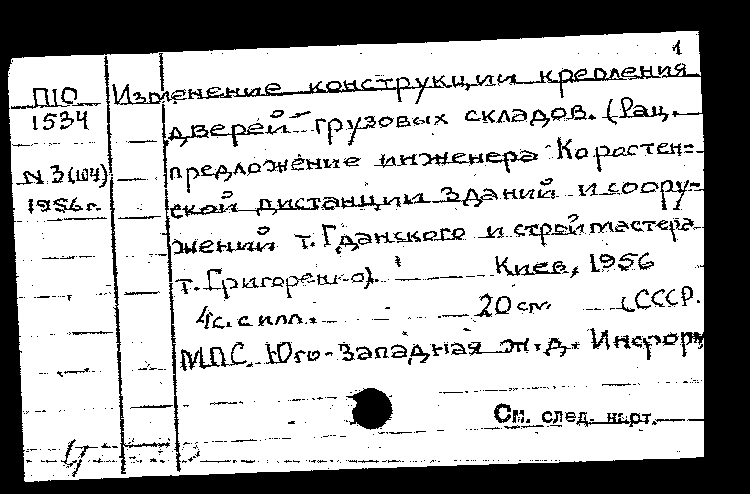 1
П10 Изменение конструкции крепления
1534 дверей грузовых складов. (Рац.
N 3 (104) предложение инженера Корастен=
1956 г. ской дистанции зданий и соору=
жений т. Гданского и строймастера
т. Григоренко). Киев, 1956
4 с. с илл. 20 см. (СССР.
МПС. Юго-Западная ж.д. Информ
См. след. карт.